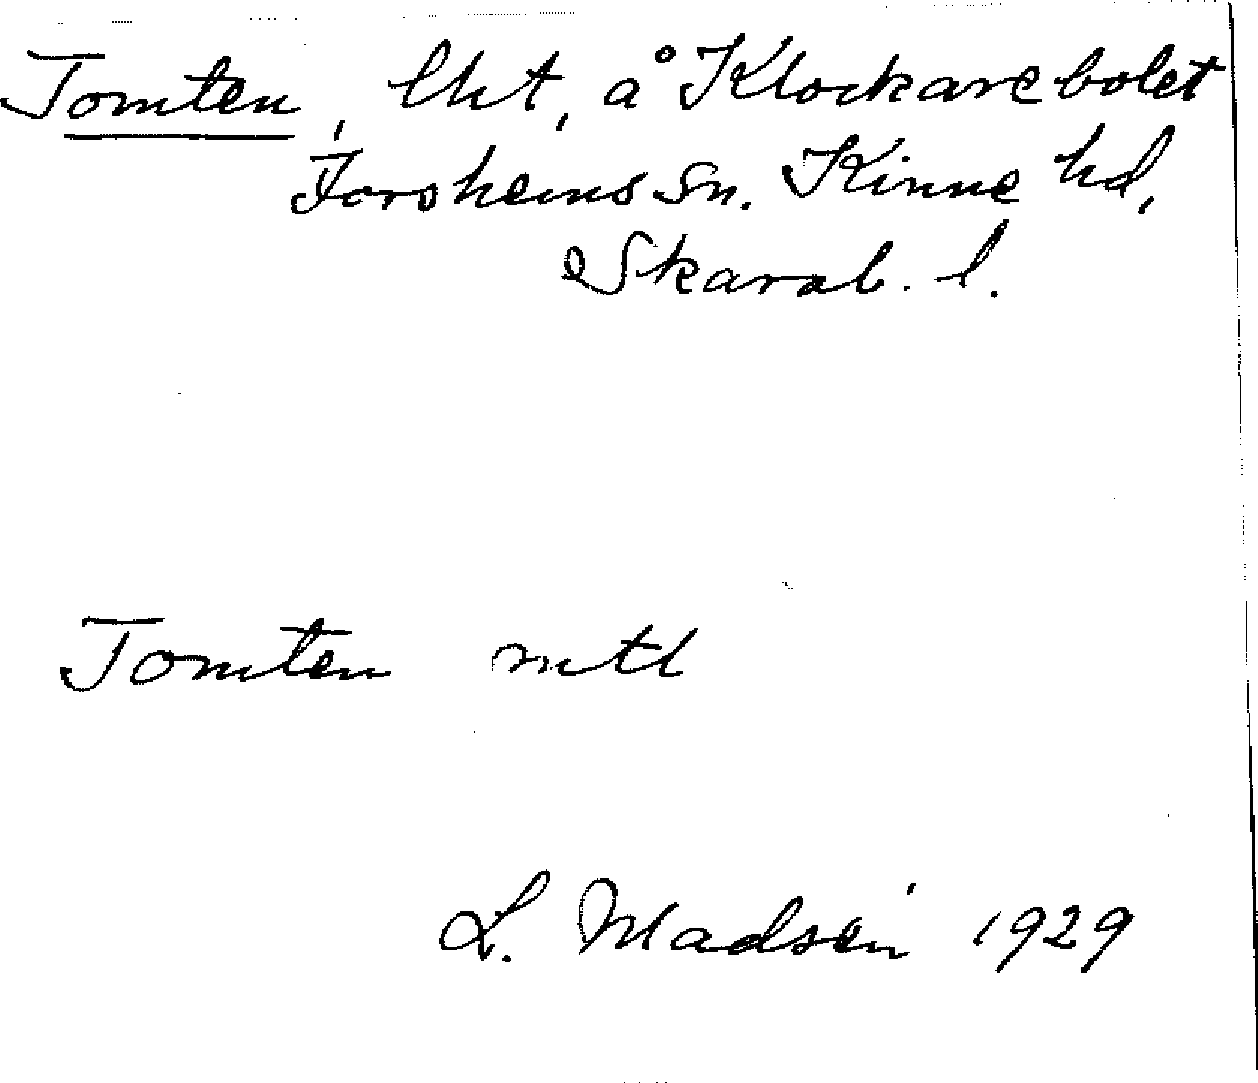 Tomten, lht, å Klockarebolet
Forshems sn. Kinne hd,
Skarab. l.
Tomten mtl
L. Madsén 1929